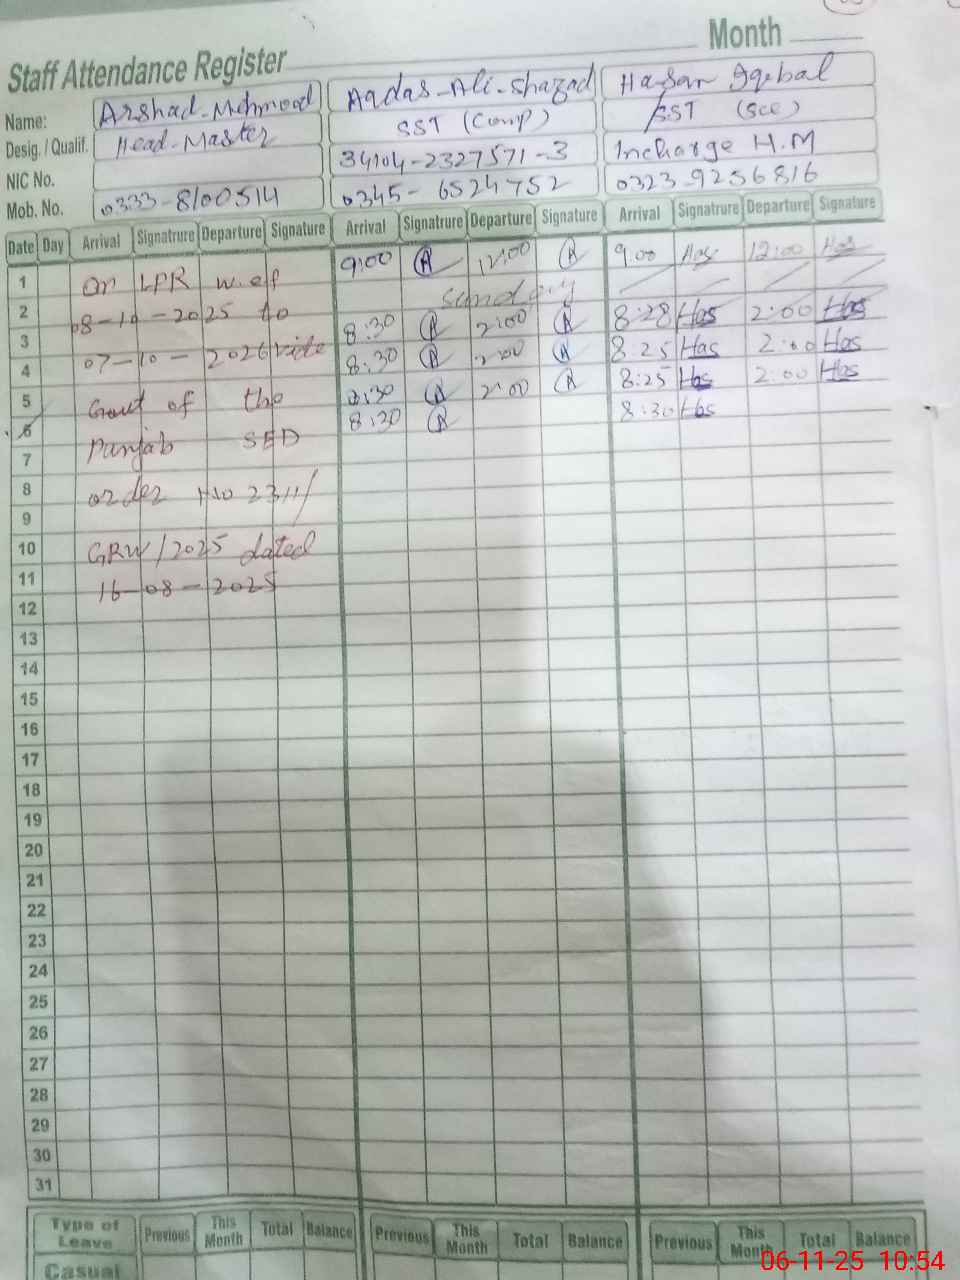 Month
Staff Attendance Register
Name: Arshad-Mehmood Aqdas-Ali-Shazad Hassan Iqebal
Desig. / Qualif. Head-Master SST (Comp) SST (Sce)
NIC No. 34104-2327571-3 Incharge H.M
Mob. No. 0333-8100514 0345-6524752 0323-9256816
Date Day Arrival Signatrure Departure Signature Arrival Signatrure Departure Signature Arrival Signatrure Departure Signature
1 On LPR w.ef 9:00 A 12:00 A 9:00 Has 12:00 Has
2 08-10-2025 to Sunday
3 8:30 A 2:00 A 8:28 Has 2:00 Has
4 07-10-2026 vide 8:30 A 2:00 A 8:25 Has 2:00 Has
5 Govt of the 8:30 A 2:00 A 8:25 Has 2:00 Has
6 8:30 A 8:30 Has
7 Punjab SED
8 order No 2311/
9
10 GRW/2025 dated
11 16-08-2025
12
13
14
15
16
17
18
19
20
21
22
23
24
25
26
27
28
29
30
31
Type of Leave Previous This Month Total Balance Previous This Month Total Balance Previous This Month Total Balance
Casual
06-11-25 10:54